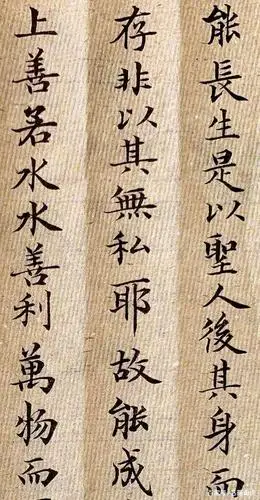 能長生是以聖人後其身而
存非以其無私耶故能成
上善若水水善利萬物而